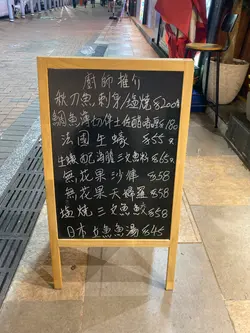 廚師推介
秋刀魚刺身/塩燒 $200
鯛魚薄切伴土佐醋 $180
法國生蠔 $45
生蠔 海膽 三文魚籽 $65
無花果沙律 $58
無花果天婦羅 $58
塩燒三文魚鮫 $58
日本 魚湯 $55